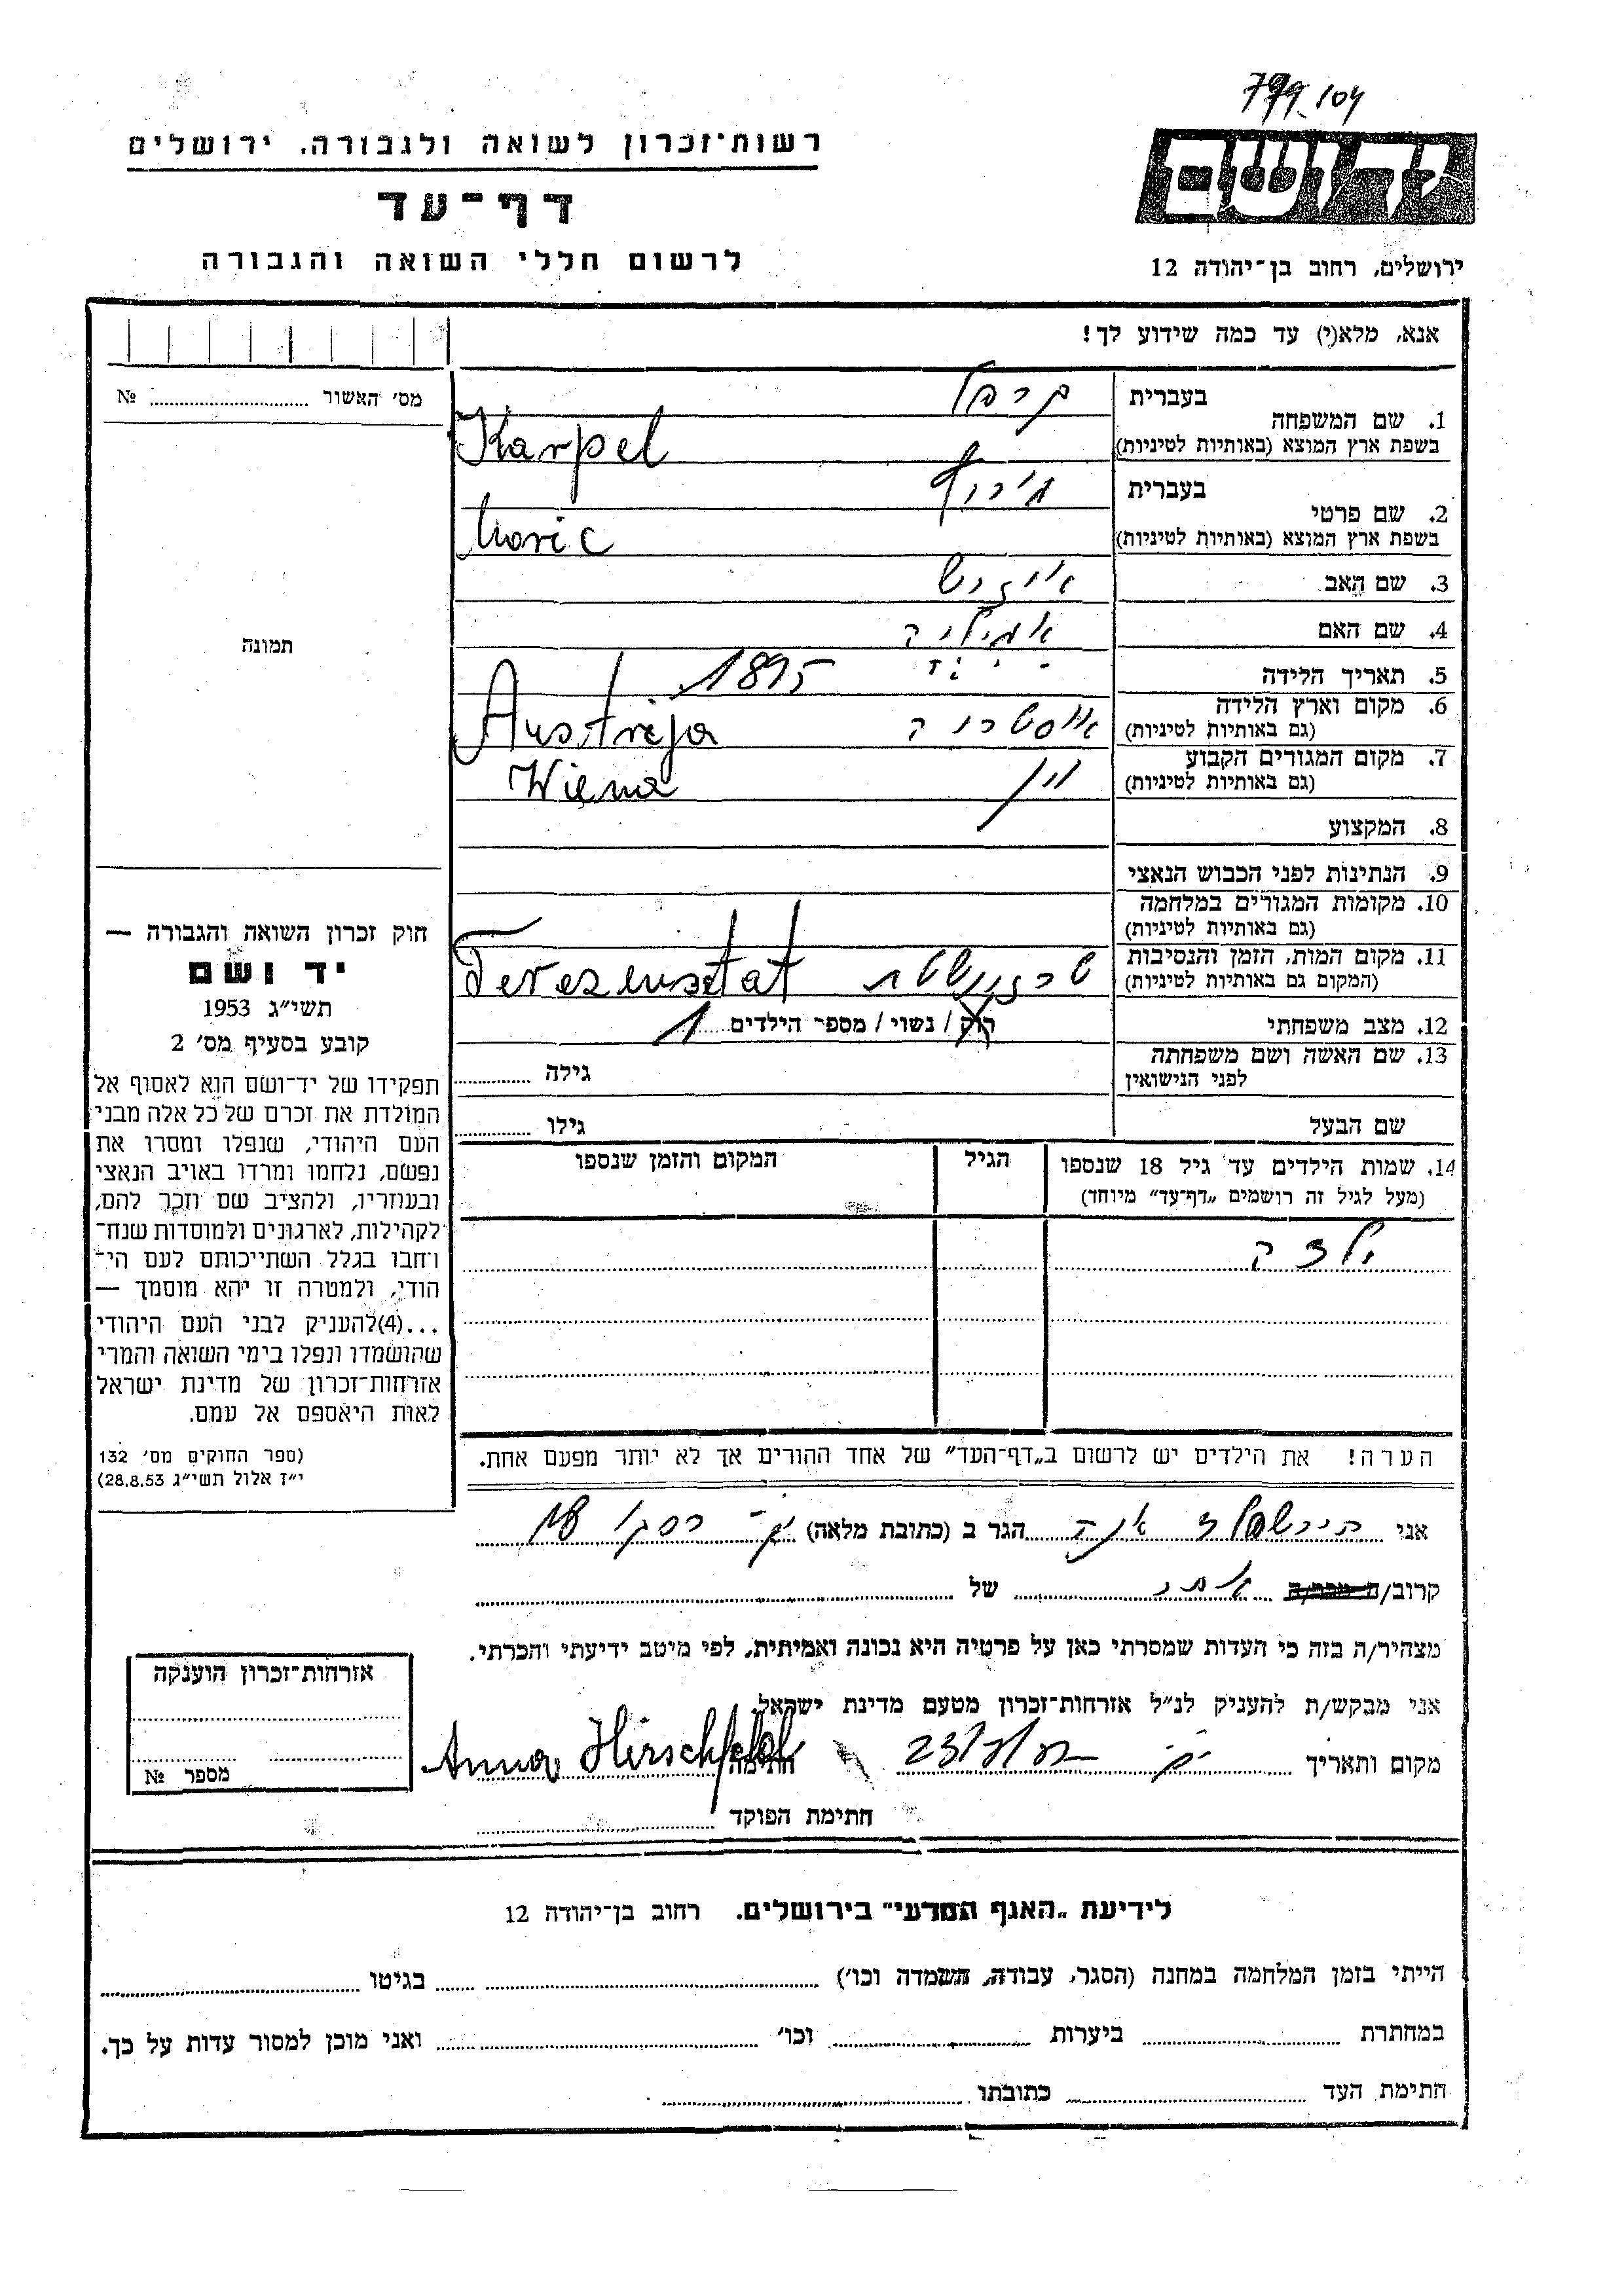 רשות־זכרון לשואה ולגבורה, ירושלים
דף־עד
לרשום חללי השואה והגבורה
יד ושם
ירושלים, רחוב בן־יהודה 12
אנא, מלא(י) עד כמה שידוע לך!
מס׳ האשור № ....
תמונה
1. שם המשפחה
בעברית קרפל
בשפת ארץ המוצא (באותיות לטיניות) Karpel
2. שם פרטי
בעברית
בשפת ארץ המוצא (באותיות לטיניות) Moric
3. שם האב
4. שם האם אמיליה
5. תאריך הלידה 1895
6. מקום וארץ הלידה
(גם באותיות לטיניות) אוסטריה Austrija
7. מקום המגורים הקבוע
(גם באותיות לטיניות) וין Wiena
8. המקצוע
9. הנתינות לפני הכבוש הנאצי
10. מקומות המגורים במלחמה
(גם באותיות לטיניות)
11. מקום המות, הזמן והנסיבות
(המקום גם באותיות לטיניות) Terezensztat
12. מצב משפחתי רוק / נשוי / מספר הילדים 1
13. שם האשה ושם משפחתה
לפני הנישואין
גילה
שם הבעל
גילו
14. שמות הילדים עד גיל 18 שנספו
(מעל לגיל זה רושמים „דף־עד״ מיוחד)
הגיל
המקום והזמן שנספו
ילדה
הערה! את הילדים יש לרשום ב„דף־העד״ של אחד ההורים אך לא יותר מפעם אחת.
חוק זכרון השואה והגבורה —
יד ושם
תשי״ג 1953
קובע בסעיף מס׳ 2
תפקידו של יד־ושם הוא לאסוף אל
המולדת את זכרם של כל אלה מבני
העם היהודי, שנפלו ומסרו את
נפשם, נלחמו ומרדו באויב הנאצי
ובעוזריו, ולהציב שם וזכר להם,
לקהילות, לארגונים ולמוסדות שנח־
רחבו בגלל השתייכותם לעם הי־
הודי, ולמטרה זו יהא מוסמך —
...(4)להעניק לבני העם היהודי
שהושמדו ונפלו בימי השואה והמרי
אזרחות־זכרון של מדינת ישראל
לאות היאספם אל עמם.
(ספר החוקים מס׳ 132
י״ז אלול תשי״ג 28.8.53)
אני הירשפלד אנה הגר ב (כתובת מלאה)
קרוב/ה מכר/ה של
מצהיר/ה בזה כי העדות שמסרתי כאן על פרטיה היא נכונה ואמיתית, לפי מיטב ידיעתי והכרתי.
אני מבקש/ת להעניק לנ״ל אזרחות־זכרון מטעם מדינת ישראל.
מקום ותאריך חתימה Anna Hirschfeld
חתימת הפוקד
אזרחות־זכרון הוענקה
מספר №
לידיעת „האגף המדעי״ בירושלים. רחוב בן־יהודה 12
הייתי בזמן המלחמה במחנה (הסגר, עבודה, השמדה וכו׳) בגיטו
במחתרת ביערות וכו׳ ואני מוכן למסור עדות על כך.
חתימת העד כתובתו